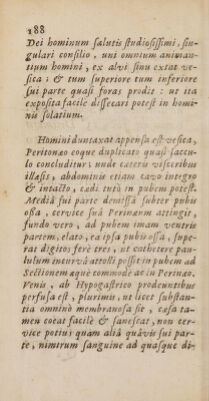 188
Dei hominum salutis studiosissimi, sin-
gulari consilio, uni omnium animan-
tium homini, ex alvi sinu extat ve-
sica; & tum superiore tum inferiore
sui parte quasi foras prodit: ut ita
exposita facile dissecari potest in homi-
nis solatium.
Homini duntaxat appensa est vesica,
Peritonæo eoque duplicato quasi saccu-
lo concluditur; unde cæteris visceribus
illæsis, abdominis etiam cavo integro
& intacto, cædi tutò in pubem potest.
Mediâ sui parte demissâ subter pubis
ossa, cervice suâ Perinæum attingit,
fundo vero, ad pubem imam ventris
partem, elato, ea ipsa pubis ossa, supe-
rat digitos ferè tres, ut catheterę pau-
lulum incurvâ attolli possit in pubem ad
Sectionem æquè commodè ac in Perinæo.
Venis, ab Hypogastrico prodeuntibus
perfusa est, plurimis, ut licet substan-
tia omninò membranosa sit, cæsa ta-
men coeat facilè & sanescat, non cer-
vice potius quam aliâ quâvis sui par-
te, nimirum sanguine ad quasque di-